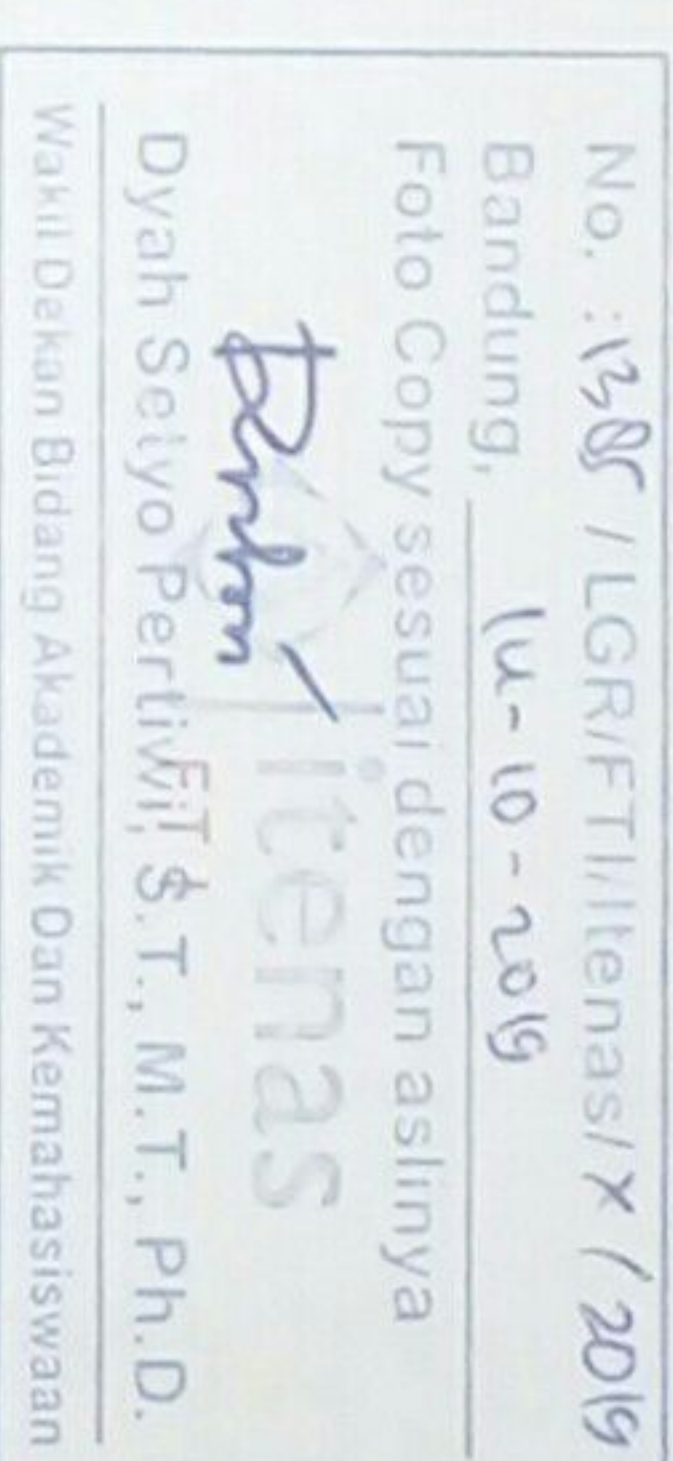 No. : 1385 / LGR/FTI/Itenas/ X / 2019
Bandung, 14-10-2019
Foto Copy sesuai dengan aslinya
itenas
FTI
Dyah Setyo Pertiwi, S.T., M.T., Ph.D.
Wakil Dekan Bidang Akademik Dan Kemahasiswaan